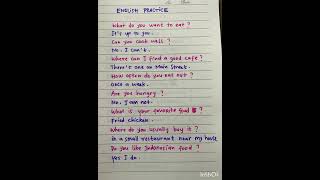 ENGLISH PRACTICE
What do you want to eat ?
It's up to you.
Can you cook well ?
No. I can't.
Where can I find a good cafe ?
There's one on Main Street.
How often do you eat out ?
Once a week.
Are you hungry ?
No. I am not.
What is your favorite food ?
Fried chicken.
Where do you usually buy it ?
In a small restaurant near my house
Do you like Indonesian food ?
Yes I do.